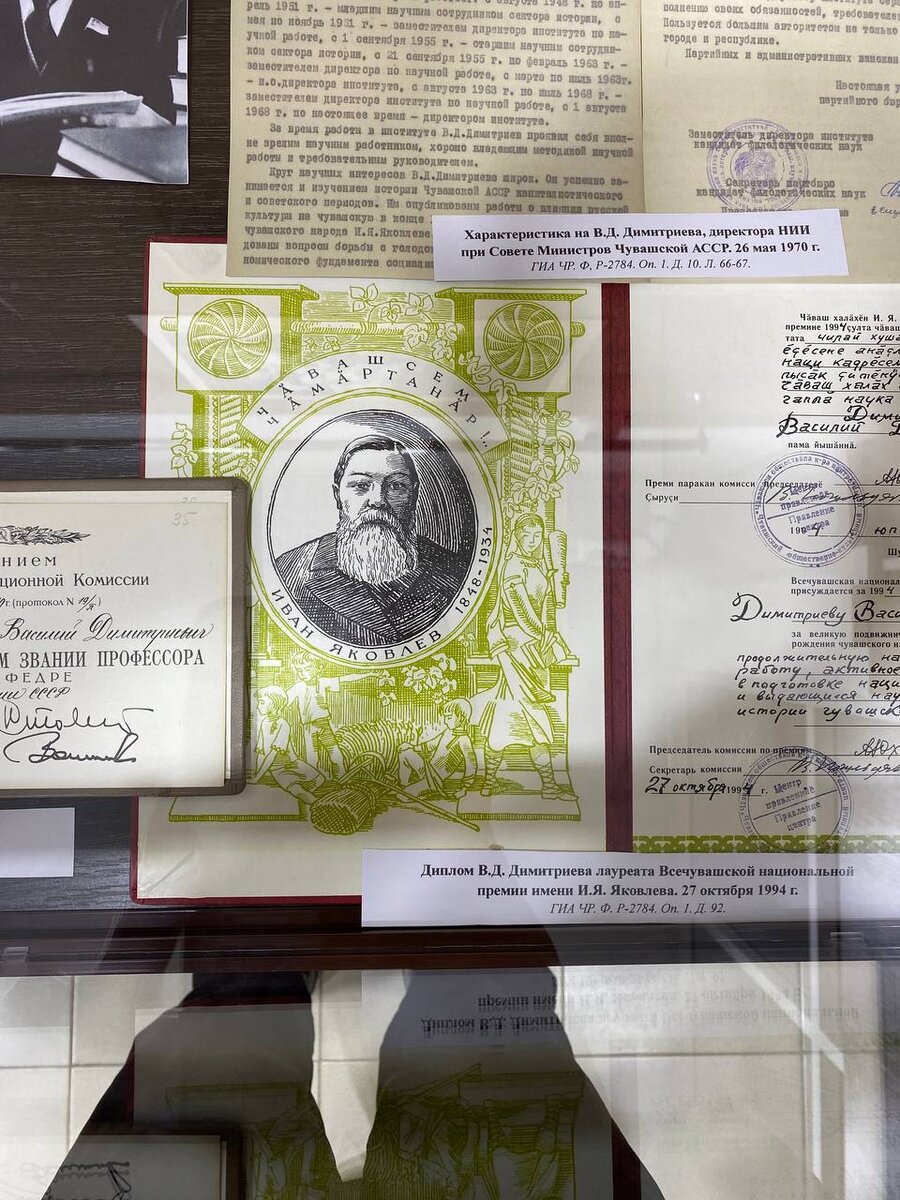 рель 1951 г. - младшим научным сотрудником сектора истории, с
мая по ноябрь 1951 г. - заместителем директора института по на-
учной работе, с 1 сентября 1955 г. - старшим научным сотрудни-
ком сектора истории, с 21 сентября 1955 г. по февраль 1963 г. -
заместителем директора по научной работе, с марта по июль 1963г.
- и.о.директора института, с августа 1963 г. по июль 1968 г. -
заместителем директора института по научной работе, с 1 августа
1968 г. по настоящее время - директором института.
За время работы в институте В.Д.Димитриев проявил себя впол-
не зрелым научным работником, хорошо владеющим методикой научной
работы и требовательным руководителем.
Круг научных интересов В.Д.Димитриева широк. Он успешно за-
нимается и изучением истории Чувашской АССР капиталистического
и советского периодов. Им опубликованы работы о влиянии русской
культуры на чувашскую в конце
чувашского народа И.Я.Яковлеве
дованы вопросы борьбы с голодом
номического фундамента социали
своих обязанностей,
Пользуется большим авторитетом не только
городе и республике.
Партийных и административных взыскан
Настоящая
партийного бюр
Заместитель директора института
кандидат филологических наук
Секретарь партбюро
кандидат филологических наук
Характеристика на В.Д. Димитриева, директора НИИ
при Совете Министров Чувашской АССР. 26 мая 1970 г.
ГИА ЧР. Ф, Р-2784. Оп. 1. Д. 10. Л. 66-67.
ЧӐВАШСЕМ
ЧӐМӐРТАНӐР!..
ИВАН ЯКОВЛЕВ 1848-1934
35
ением
ционной Комиссии
г. (протокол N
Василий Димитриевич
М ЗВАНИИ ПРОФЕССОРА
ФЕДРЕ
ии СССР
Чӑваш халӑхӗн И. Я.
премине 1994 ҫулта чӑваш
тата
чӑваш халӑх
наука
Димит
Василий
пама йышӑннӑ.
Преми паракан комисси председателӗ
Ҫыруҫи
Центр
правление
Правление
центра
1994
Всечувашская национал
присуждается за 1994
Димитриеву Васи
за великую подвижнич
рождения чувашского на
продолжительную на
работу, активное
в подготовке наци
и выдающиеся нау
истории чувашск
Председатель комиссии по премиям
Секретарь комиссии
27 октября 1994 г.
Центр
правлениӗ
Правление
центра
Диплом В.Д. Димитриева лауреата Всечувашской национальной
премии имени И.Я. Яковлева. 27 октября 1994 г.
ГИА ЧР. Ф. Р-2784. Оп. 1. Д. 92.